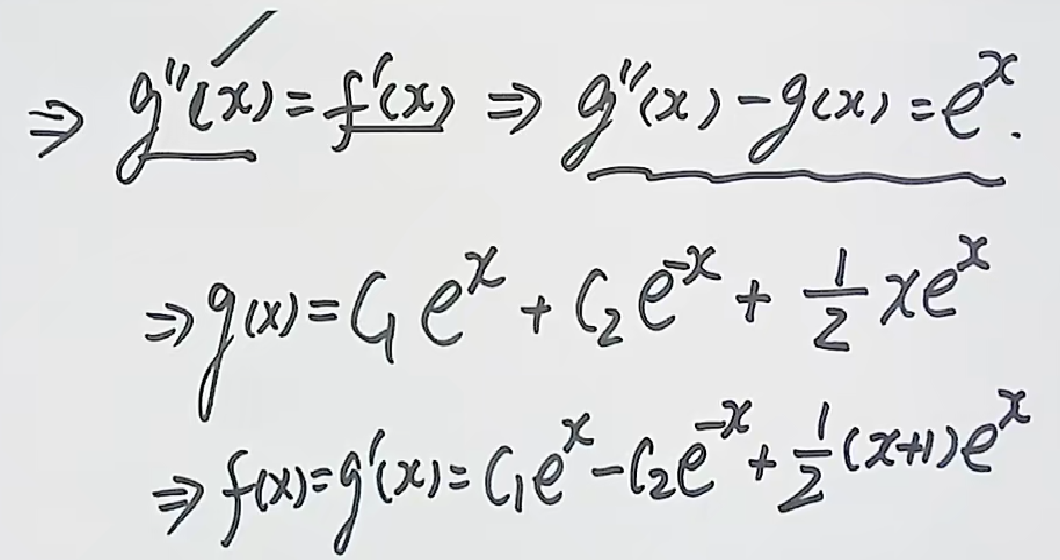 ⇒ g''(x) = f'(x) ⇒ g''(x) - g(x) = e^x.
⇒ g(x) = C₁e^x + C₂e^{-x} + \frac{1}{2}xe^x
⇒ f(x) = g'(x) = C₁e^x - C₂e^{-x} + \frac{1}{2}(x+1)e^x